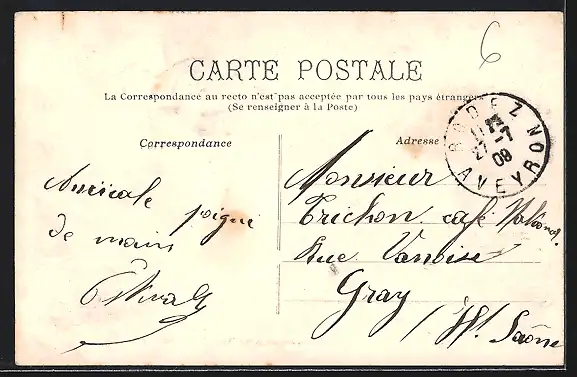 6
CARTE POSTALE
La Correspondance au recto n'est pas acceptée par tous les pays étrangers
(Se renseigner à la Poste)
RODEZ
27
09
AVEYRON
Correspondance
Adresse
Amicale poigné
de main
Monsieur
Trichon café National
Rue Vanoise
Gray
(Hte Saône